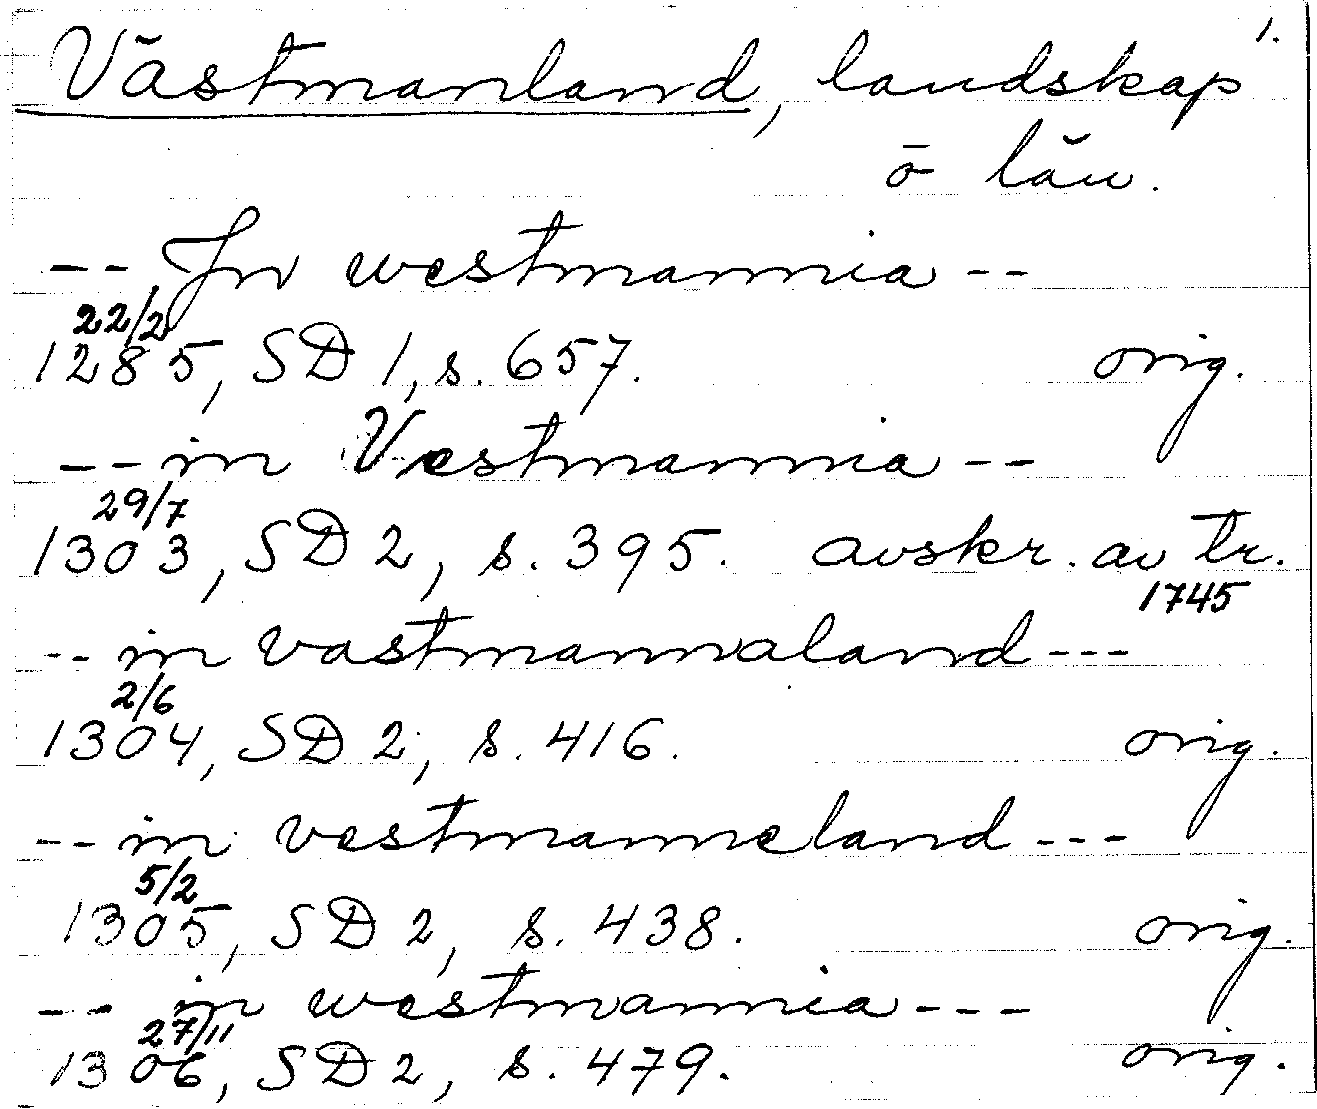 1.
Västmanland, landskap
o län.
-- In westmannia --
22/2
1285, SD 1, s. 657. orig.
-- in Vestmannia --
29/7
1303, SD 2, s. 395. avskr. av tr.
1745
-- in vastmannaland ---
2/6
1304, SD 2, s. 416. orig.
-- in vestmanneland ---
5/2
1305, SD 2, s. 438. orig.
-- in westmannia ---
27/11
1306, SD 2, s. 479. orig.